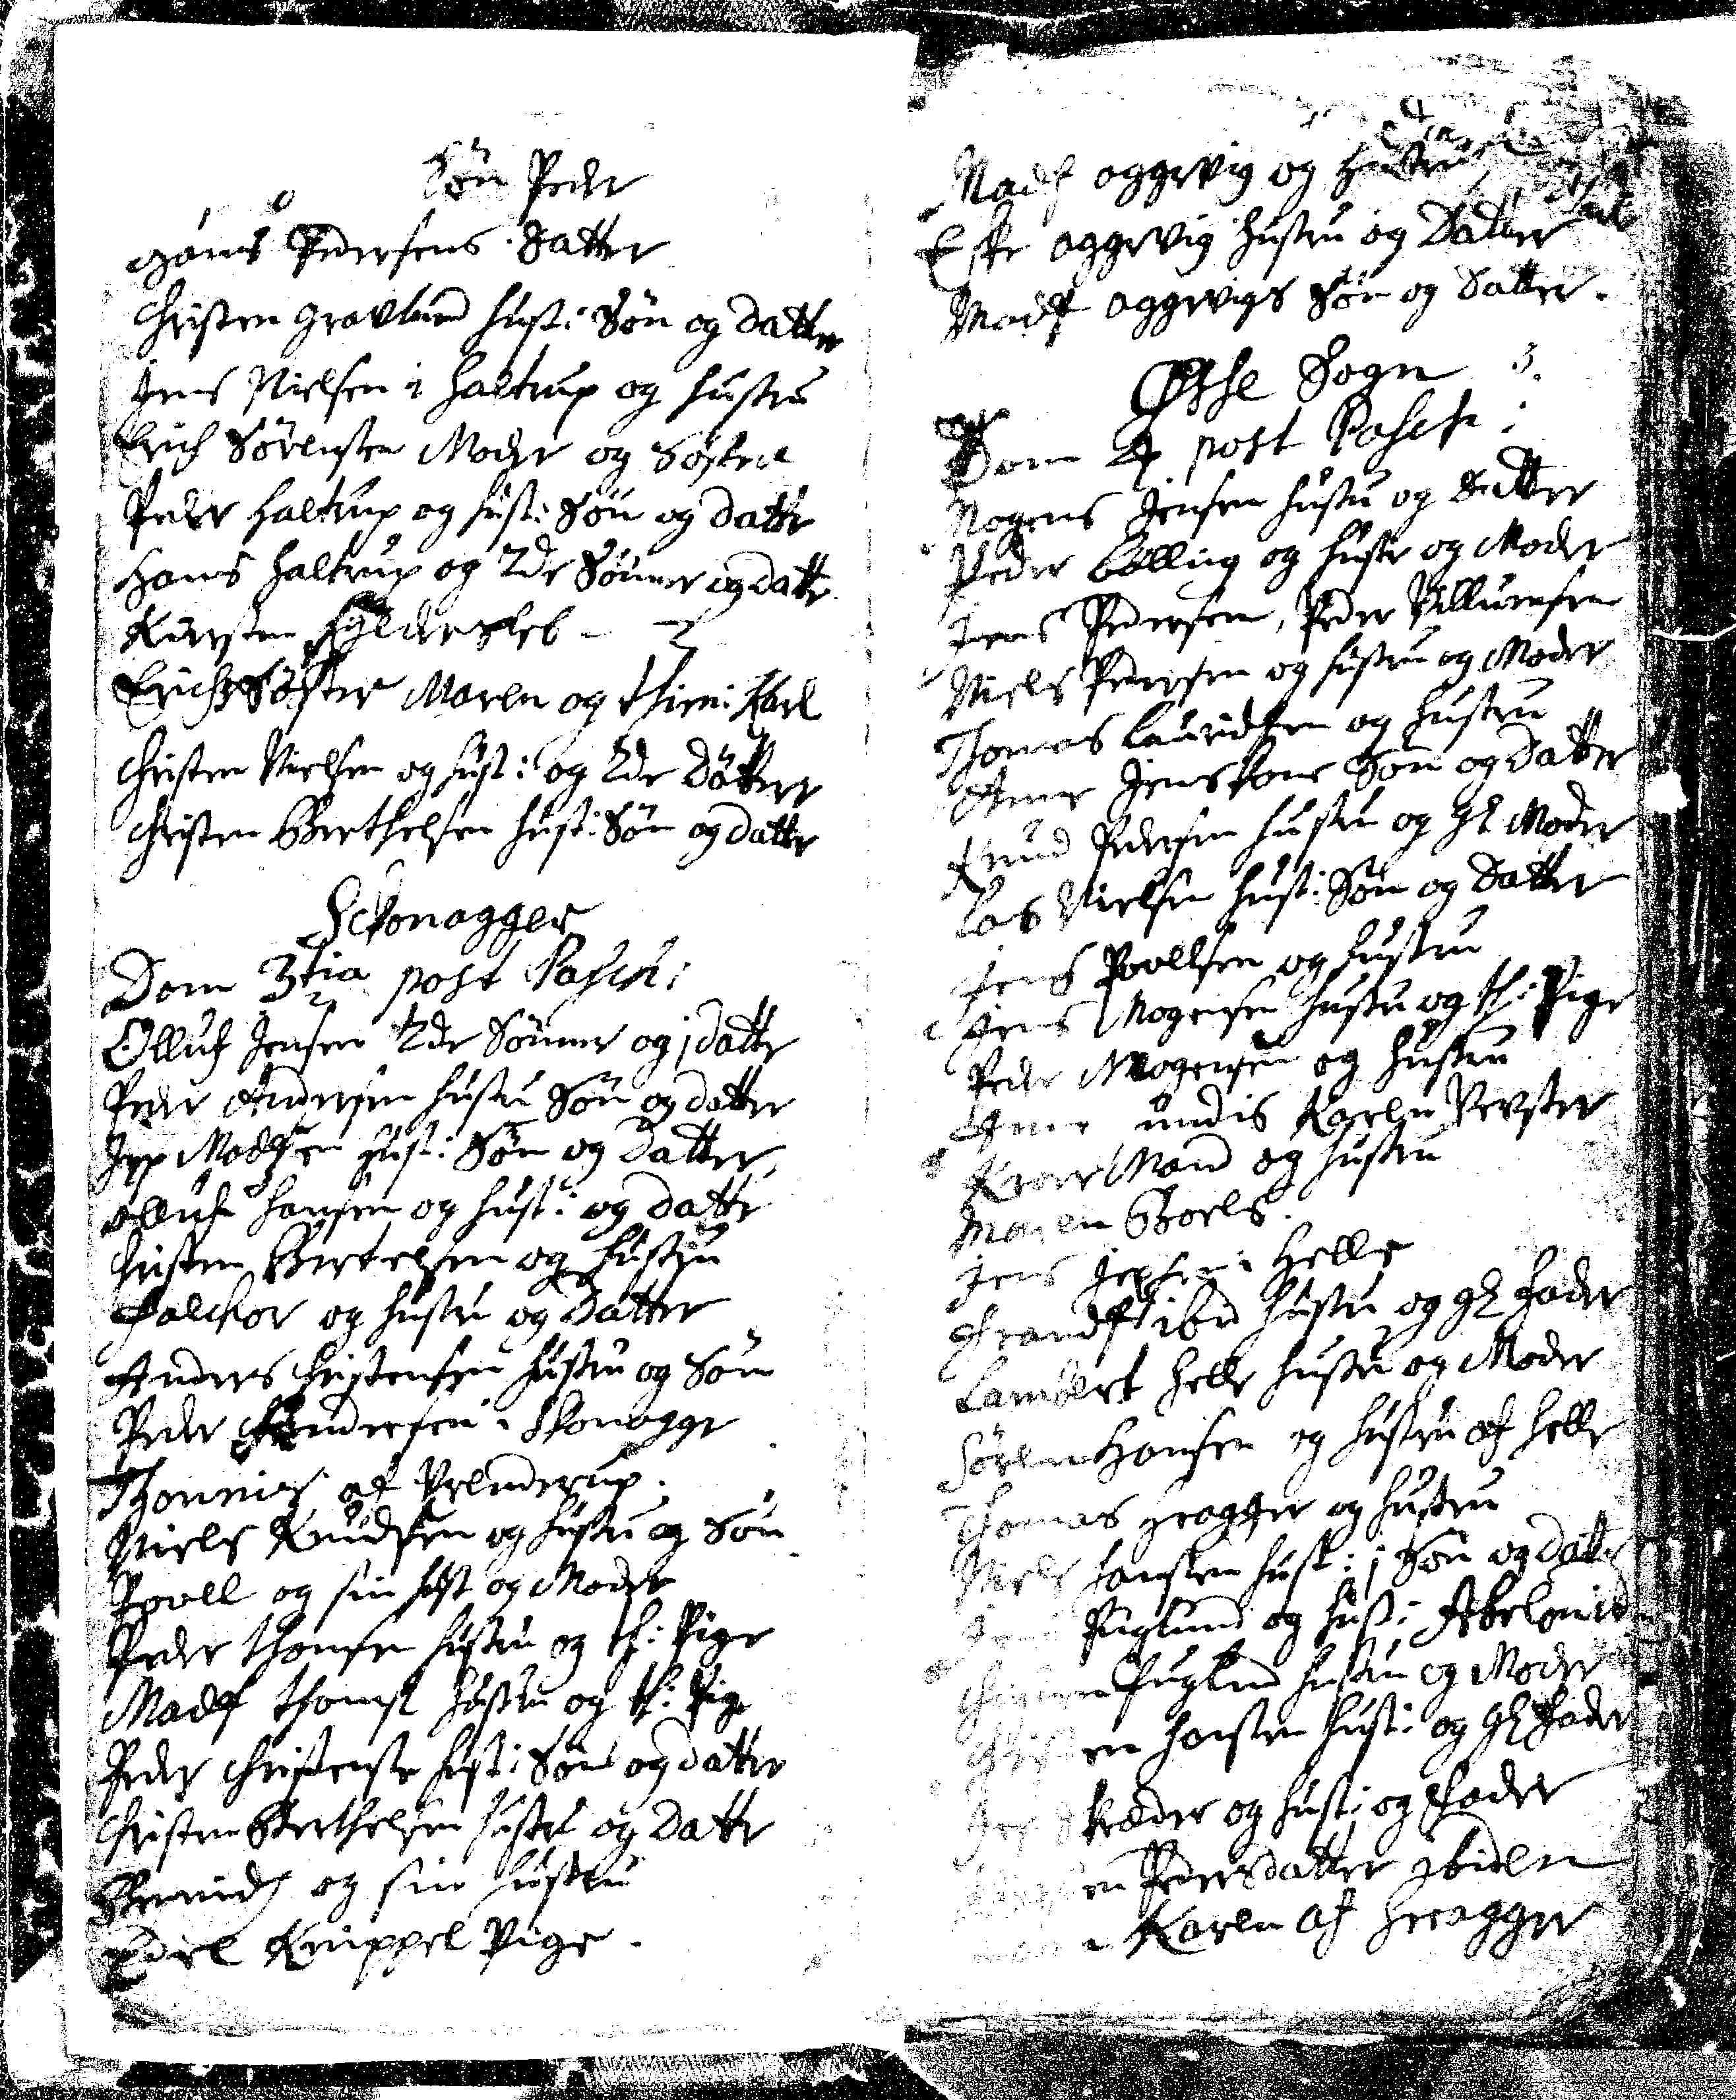 Søn Peder
Hans Pedersens Datter
Christen Gravlund hust: Søn og datter
Jens Nielsen i Haltrup og hustru
Erich Sørensen Moder og Søster
Peder Haltrup og hust: Søn og datter
Hans Haltrup og 2de Sønner og datter
Kiersten
Erichs Søster Maren og thien: Karl
Christen Nielsen og hust: og 2de Døttre
Christen Berthelsen hust: Søn og datter
Schonagger
Dom 3tia post Pasch:
Olluf Jensen 2de Sønner og j datter
Peder Andersen hustru Søn og datter
Jep Madsen hust: Søn og Datter,
olluf Hansen og hust: og datter
Christen Bertelsen og hustru
Falchor og hustru og Datter
Anders Christensen hustru og Søn
Peder Andersen i Skonagge
Thonnis af Velenderup.
Niels Knudsen og hustru og Søn
Povell og sin hust og Moder
Peder Thomsen hustru og th: Pige
Mads Thomse hustru og th: Pige
Peder Christense hust: Søn og datter
Christen Berthelsen hustru og Datter
og sin hustru
Edel Knippel Pige.
Mads aggevig og hustru
Eske aggevig hustru og Datter
Mads aggevigs Søn og datter.
Øsse Sogn 3.
Dom 4 post Pasch:
Mogens Jensen hustru og datter
Peder Bølling og hustr og Moder
Jens Pedersen, Peder Villumsen
Niels Pedersen og hustru og Moder
Thomas Lauridsen og hustru
Anne Jenskone Søn og Datter
Knud Pedersen hustru og gl Moder
Las Nielsen hust: Søn og Datter
Jens Povllsen og hustru
Jens Mogensen hustru og th: Pige
Peder Mogensen og hustru
Anne Karen
Mand og hustru
Maren Boels.
Jens Jepsen i Helle
Frands ibid hustru og gl Fader
Lambert Helle hustru og Moder
Søren Hansen og hustru af Helle
Thomas Hragger og hustru
Niels Hansen hust: j Søn og datter
Fuglund og hust: Abelonid
Fuglund hustru og Moder
Christen Hansen hust: og gl Fader
og hust: og Fader
Pedersdatter ibidem
Karen af Hragger